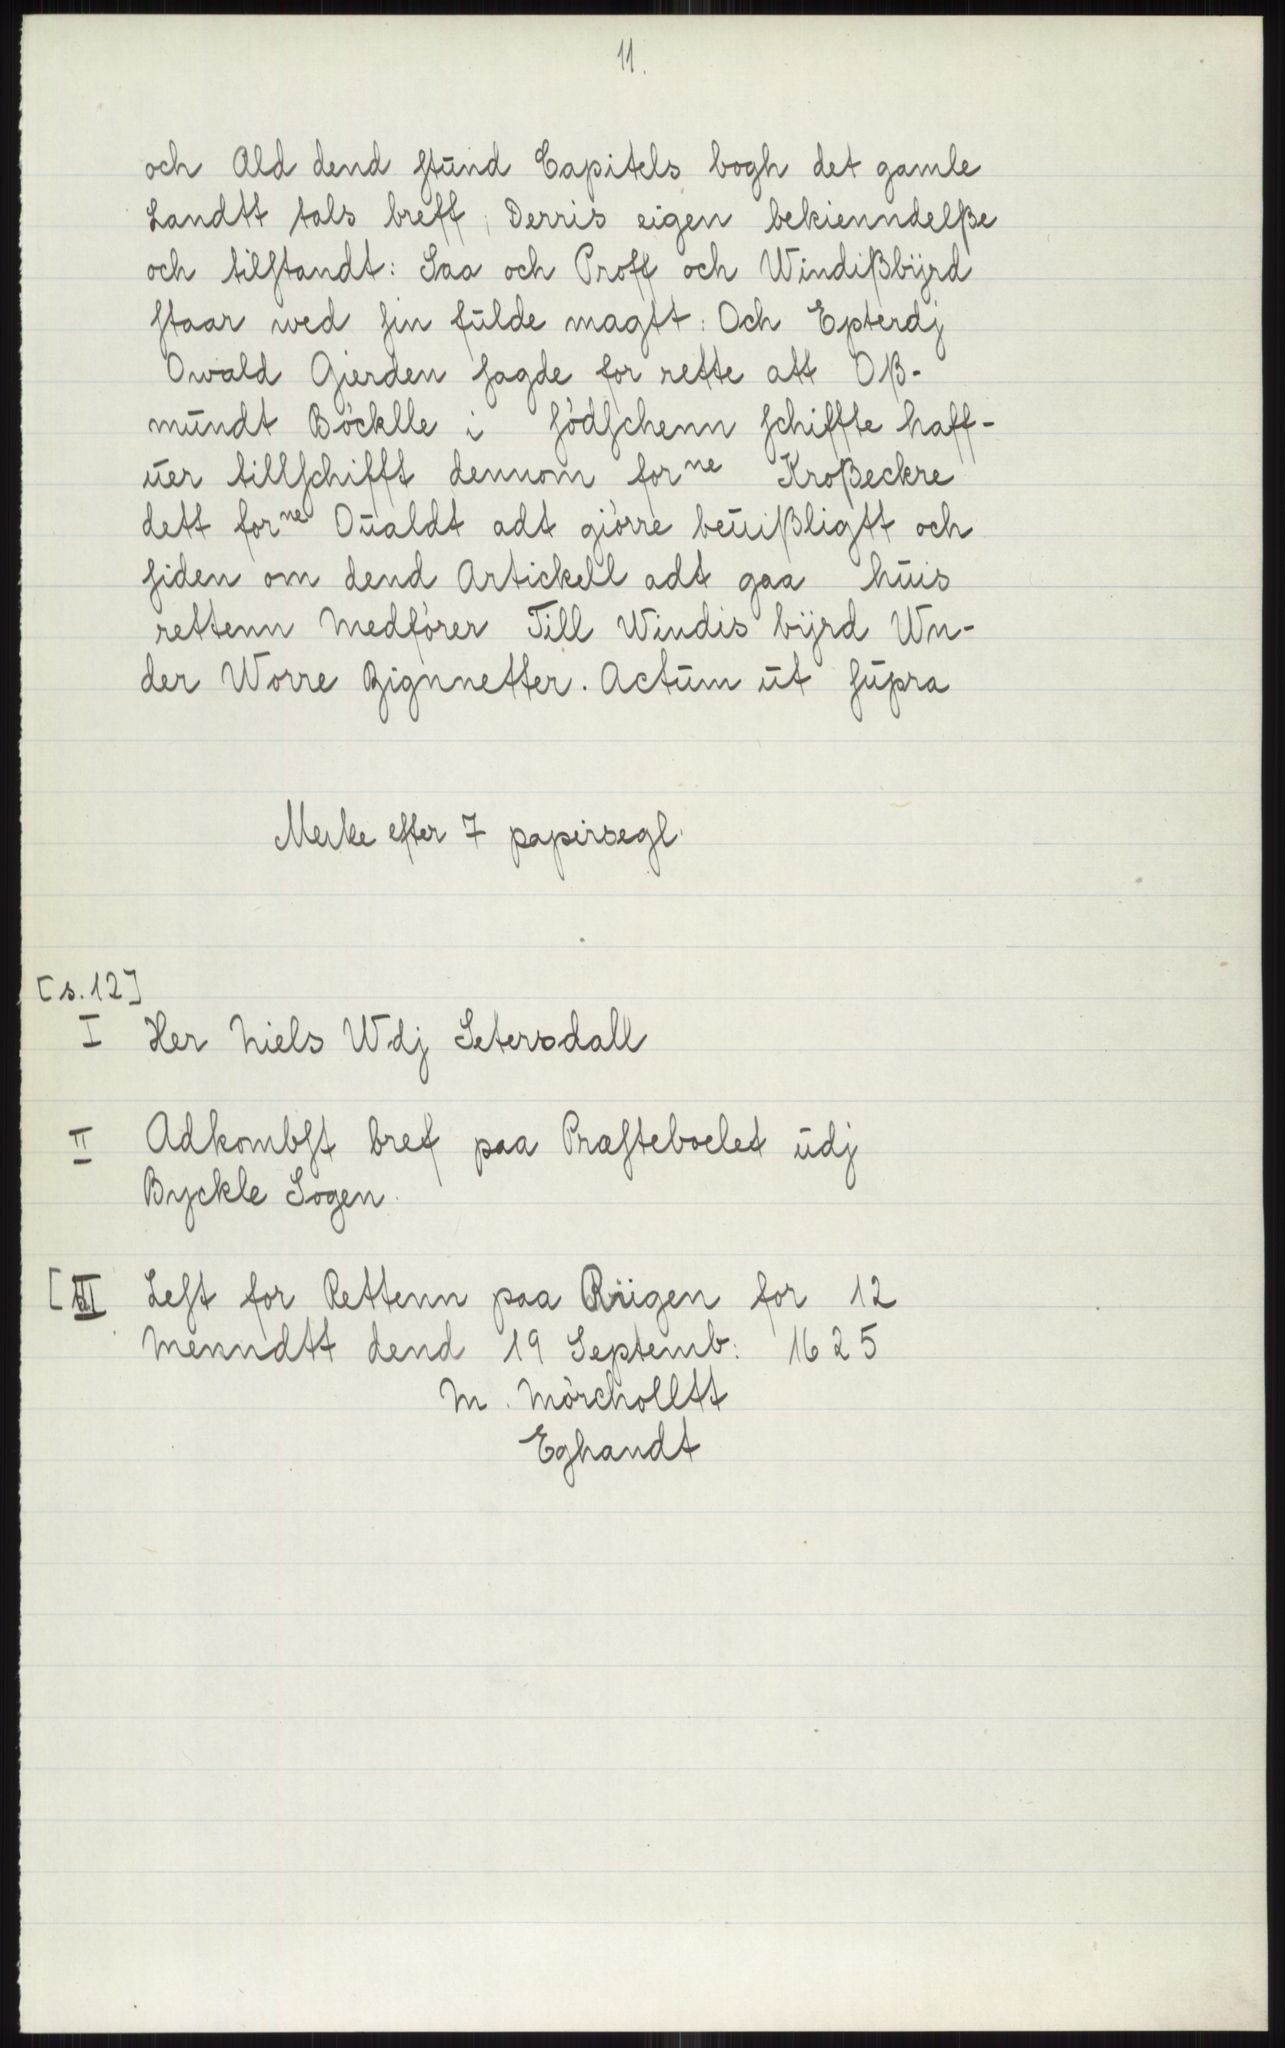 11.
och Ald dend stund Capitels bogh det gamle
Landtt tals breff, Derris eigen bekienndelße
och tilstandt: Saa och Proff och Windißbijrd
staar wed sin fulde magtt: Och Epterdj
Owald Gierden sagde for rette att Oß-
mundt Böcklle i södschenn schiffte haff-
uer tillschifft dennom forne Kroßeckre
dett forne Oualdt adt giörre beuißligtt och
siden om dend Artickell adt gaa huis
rettenn Medförer Till Windis bijrd Wn-
der Worre Zignnetter. Actum ut supra
Merke efter 7 papirsegl.
[s.12]
I Her Niels Wdj Setersdall
II Adkombst bref paa Præsteboelet udj
Byckle Sogen.
[III Lest for Rettenn paa Riigen for 12
Menndtt dend 19 Septemb: 1625
M. Mörcholltt
Eghandt